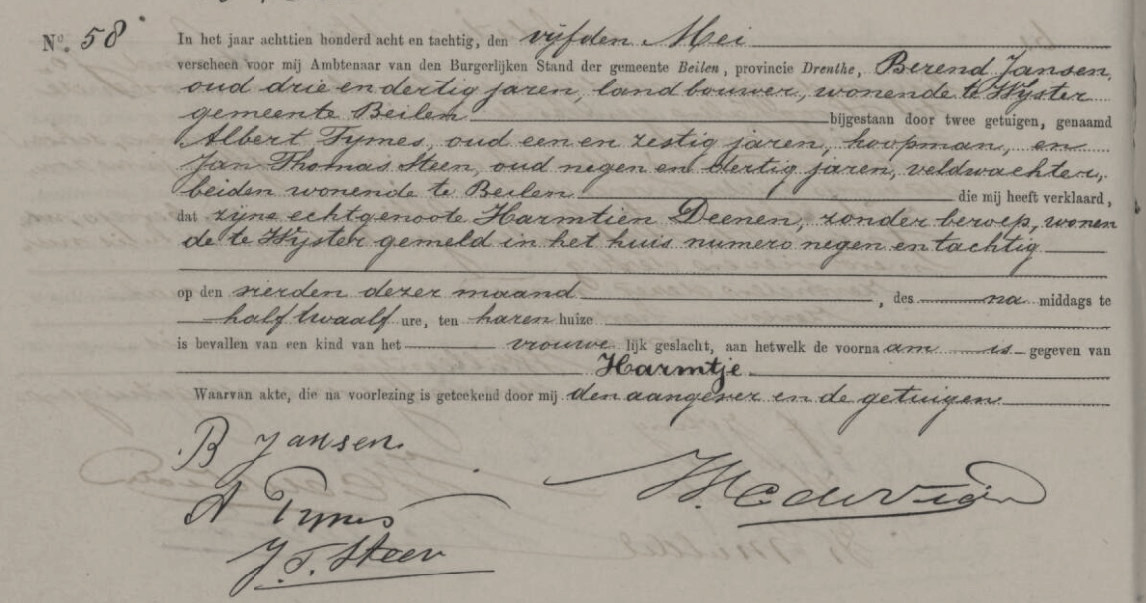 No. 58 In het jaar achttien honderd acht en tachtig, den vijfden Mei
verscheen voor mij Ambtenaar van den Burgerlijken Stand der gemeente Beilen, provincie Drenthe, Berend Jansen,
oud drie en dertig jaren, landbouwer, wonende te Wijster
gemeente Beilen bijgestaan door twee getuigen, genaamd
Albert Tymes, oud een en zestig jaren, koopman, en
Jan Thomas Steen, oud negen en dertig jaren, veldwachter,
beiden wonende te Beilen die mij heeft verklaard,
dat zijne echtgenoote Harmtien Deenen, zonder beroep, wonen
de te Wijster gemeld in het huis numero negen en tachtig
op den vierden dezer maand, des na middags te
half twaalf ure, ten haren huize
is bevallen van een kind van het vrouwelijk geslacht, aan hetwelk de voornaam is gegeven van
Harmtje
Waarvan akte, die na voorlezing is geteekend door mij den aangever en de getuigen
B Jansen
A Tymes
J. T. Steen